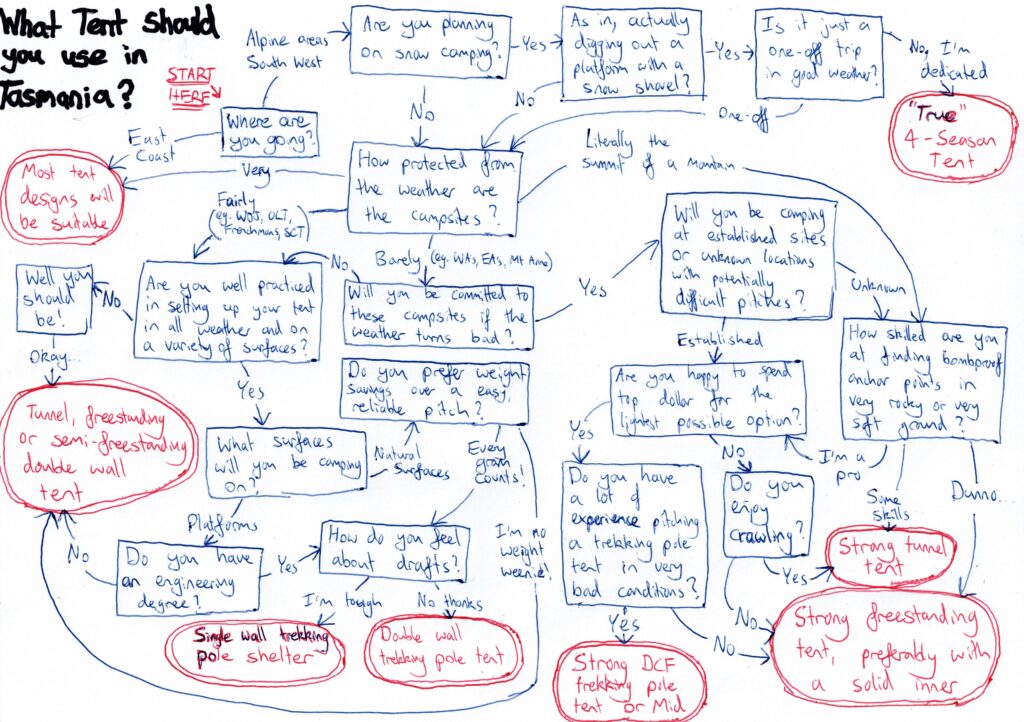 What Tent should
you use in
Tasmania?
START
HERE
Alpine areas
South West
Are you planning
on snow camping?
Yes
As in, actually
digging out a
platform with a
snow shovel?
Yes
Is it just a
one-off trip
in good weather?
No, I'm
dedicated
"True"
4-Season
Tent
No
No
One-off
Where are
you going?
East
Coast
Most tent
designs will
be suitable
Very
How protected from
the weather are
the campsites?
Literally the
summit of a mountain
Fairly
(eg. WOJ, OLT,
Frenchmans, SCT)
Barely (eg. WAs, EAs, Mt Anne)
Will you be camping
at established sites
or unknown locations
with potentially
difficult pitches?
Well you
should
be!
No
Are you well practiced
in setting up your tent
in all weather and on
a variety of surfaces?
No
Will you be committed to
these campsites if the
weather turns bad?
Yes
Unknown
Established
How skilled are you
at finding bombproof
anchor points in
very rocky or very
soft ground?
Okay...
Yes
Do you prefer weight
savings over a easy,
reliable pitch?
Are you happy to spend
top dollar for the
lightest possible option?
Tunnel, freestanding
or semi-freestanding
double wall
tent
What surfaces
will you be camping
on?
Natural
Surfaces
Every
gram
counts!
Yes
No
I'm a
pro
Some
skills
Dunno...
Do you have
a lot of
experience pitching
a trekking pole
tent in very
bad conditions?
Do you
enjoy
crawling?
Platforms
I'm no
weight
weenie!
No
Do you have
an engineering
degree?
Yes
How do you feel
about drafts?
Yes
Strong tunnel
tent
I'm tough
No thanks
Single wall trekking
pole shelter
Double wall
trekking pole tent
Yes
No
No
Strong DCF
trekking pole
tent or Mid
Strong freestanding
tent, preferably with
a solid inner